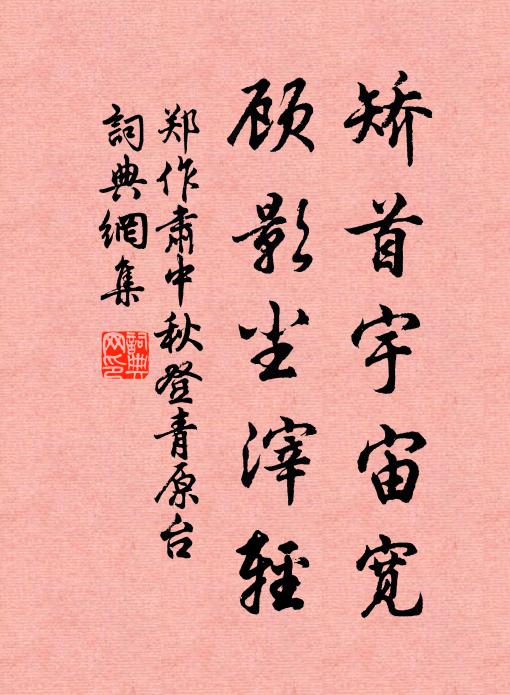 矫首宇宙宽
顾影尘滓輕
郑作肃中秋登青原台
詞典網集
詞典網印